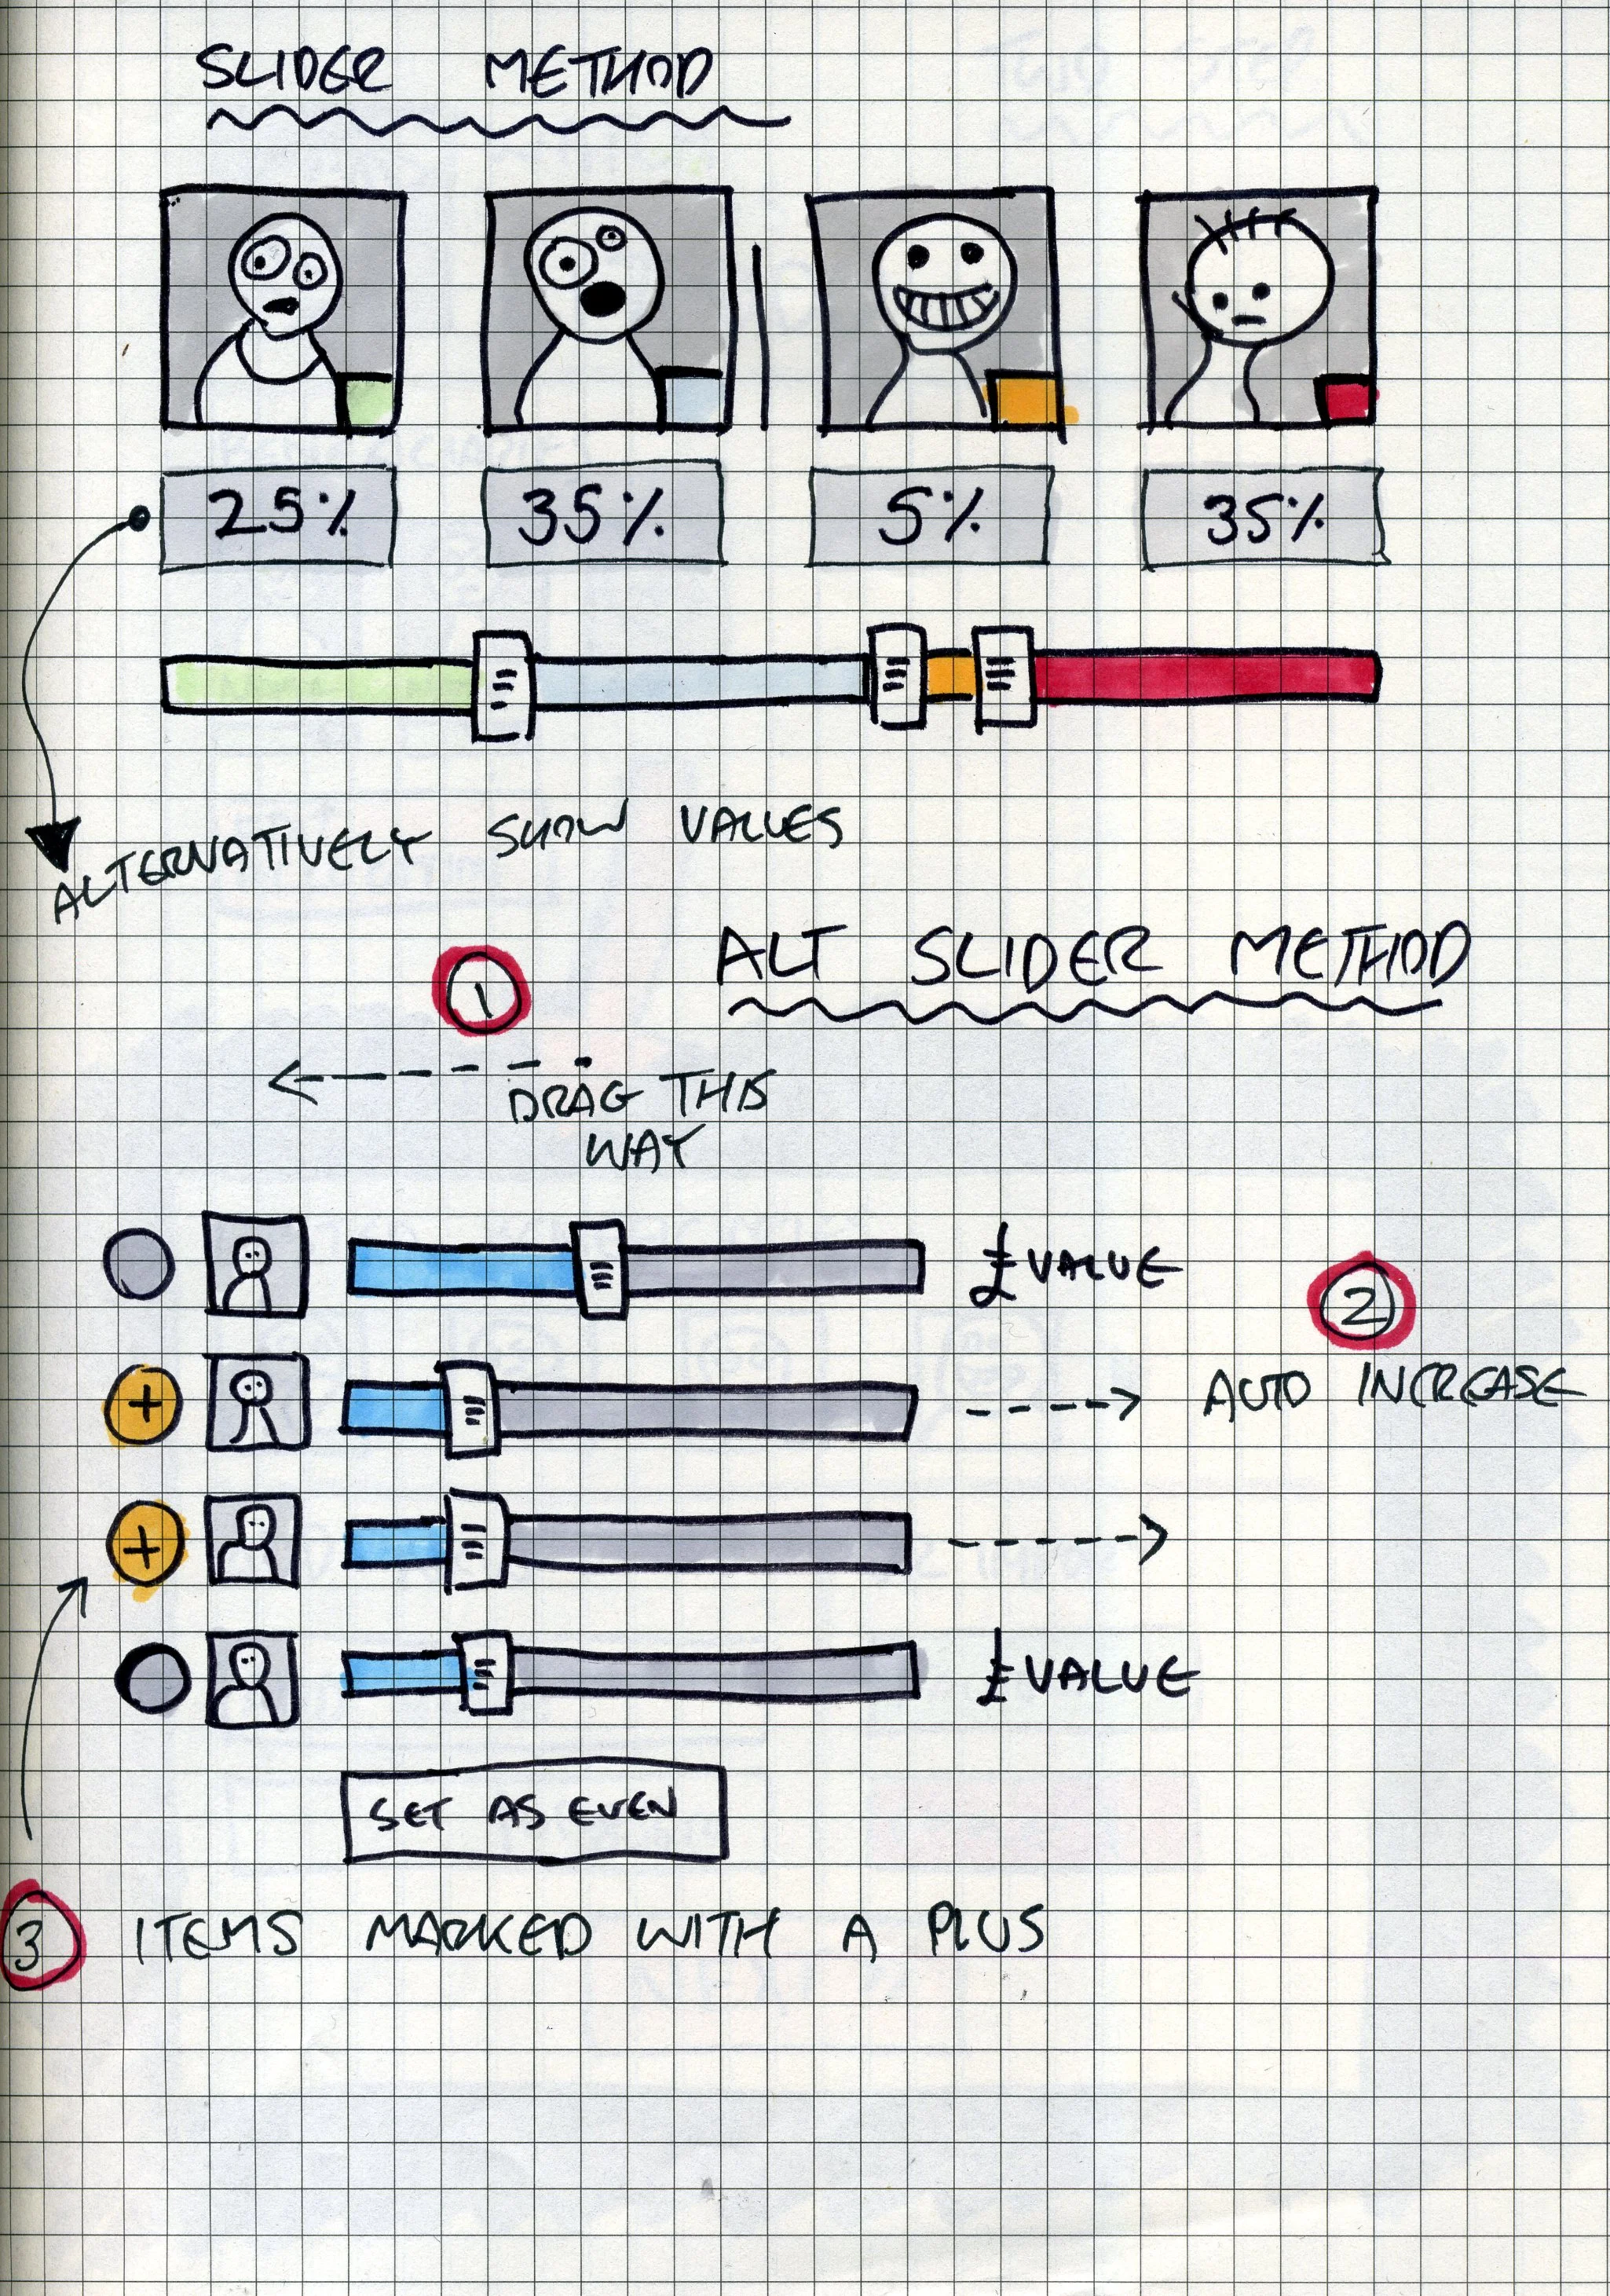 SLIDER METHOD
25% 35% 5% 35%
ALTERNATIVELY SHOW VALUES
ALT SLIDER METHOD
1
DRAG THIS
WAY
£ VALUE
2
+ AUTO INCREASE
+
£ VALUE
SET AS EVEN
3 ITEMS MARKED WITH A PLUS